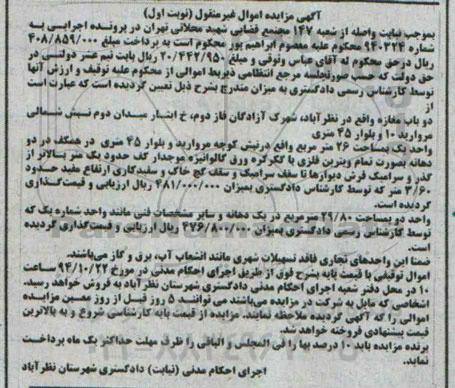 آگهی مزایده اموال غیرمنقول (نوبت اول)
بموجب نیابت واصله از شعبه ۱۴۷ مجتمع قضایی شهید محلاتی تهران در پرونده اجرایی به
شماره ۹۴۰۳۲۴ محکوم علیه معصوم ابراهیم پور محکوم است به پرداخت مبلغ ۴۰۸/۸۵۹/۰۰۰
ریال در حق محکوم له آقای عباس وثوقی و مبلغ ۲۰/۴۴۲/۹۵۰ ریال بابت نیم عشر دولتی در
حق دولت که حسب صورتجلسه مرجع انتظامی ذیربط اموالی از محکوم علیه توقیف و ارزش آنها
توسط کارشناس رسمی دادگستری به میزان مندرج بشرح ذیل تعیین گردیده است که عبارت است
از
دو باب مغازه واقع در نظرآباد، شهرک آزادگان فاز دوم، خ ایثار میدان دوم نبش شمالی
مروارید ۱۰ و بلوار ۴۵ متری
واحد یک بمساحت ۲۶ متر مربع واقع در نبش کوچه مروارید و بلوار ۴۵ متری در همکف در دو
دهانه بصورت تمام ویترین فلزی با کرکره ورق گالوانیزه موجدار کف حدود یک متر بالاتر از
گذر و سرامیک فرش دیوارها تا سقف سرامیک و سقف گچ خاک و سفیدکاری ارتفاع مفید حدود
۳/۶۰ متر که توسط کارشناس دادگستری بمیزان ۴۸۱/۰۰۰/۰۰۰ ریال ارزیابی و قیمت‌گذاری
گردیده است.
واحد دو بمساحت ۲۹/۸۰ مترمربع در یک دهانه و سایر مشخصات فنی مانند واحد شماره یک که
توسط کارشناس رسمی دادگستری بمیزان ۴۷۶/۸۰۰/۰۰۰ ریال ارزیابی و قیمت‌گذاری گردیده
است.
ضمنا این واحدهای تجاری فاقد تسهیلات شهری مانند انشعاب آب، برق و گاز می‌باشند.
اموال توقیفی با قیمت پایه بشرح فوق از طریق اجرای احکام مدنی در مورخ ۹۴/۱۰/۲۲ ساعت
۱۰ در محل دفتر شعبه اجرای احکام مدنی دادگستری شهرستان نظرآباد به فروش خواهد رسید.
اشخاصی که مایل به شرکت در مزایده می‌باشند می توانند ۵ روز قبل از روز معین مزایده
اموالی را که آگهی گردیده ملاحظه نمایند. مزایده از قیمت پایه کارشناسی شروع و به بالاترین
قیمت پیشنهادی فروخته خواهد شد.
برنده مزایده باید ۱۰ درصد بها را فی المجلس و الباقی را ظرف مهلت حداکثر یک ماه پرداخت
نماید.
اجرای احکام مدنی (نیابت) دادگستری شهرستان نظرآباد